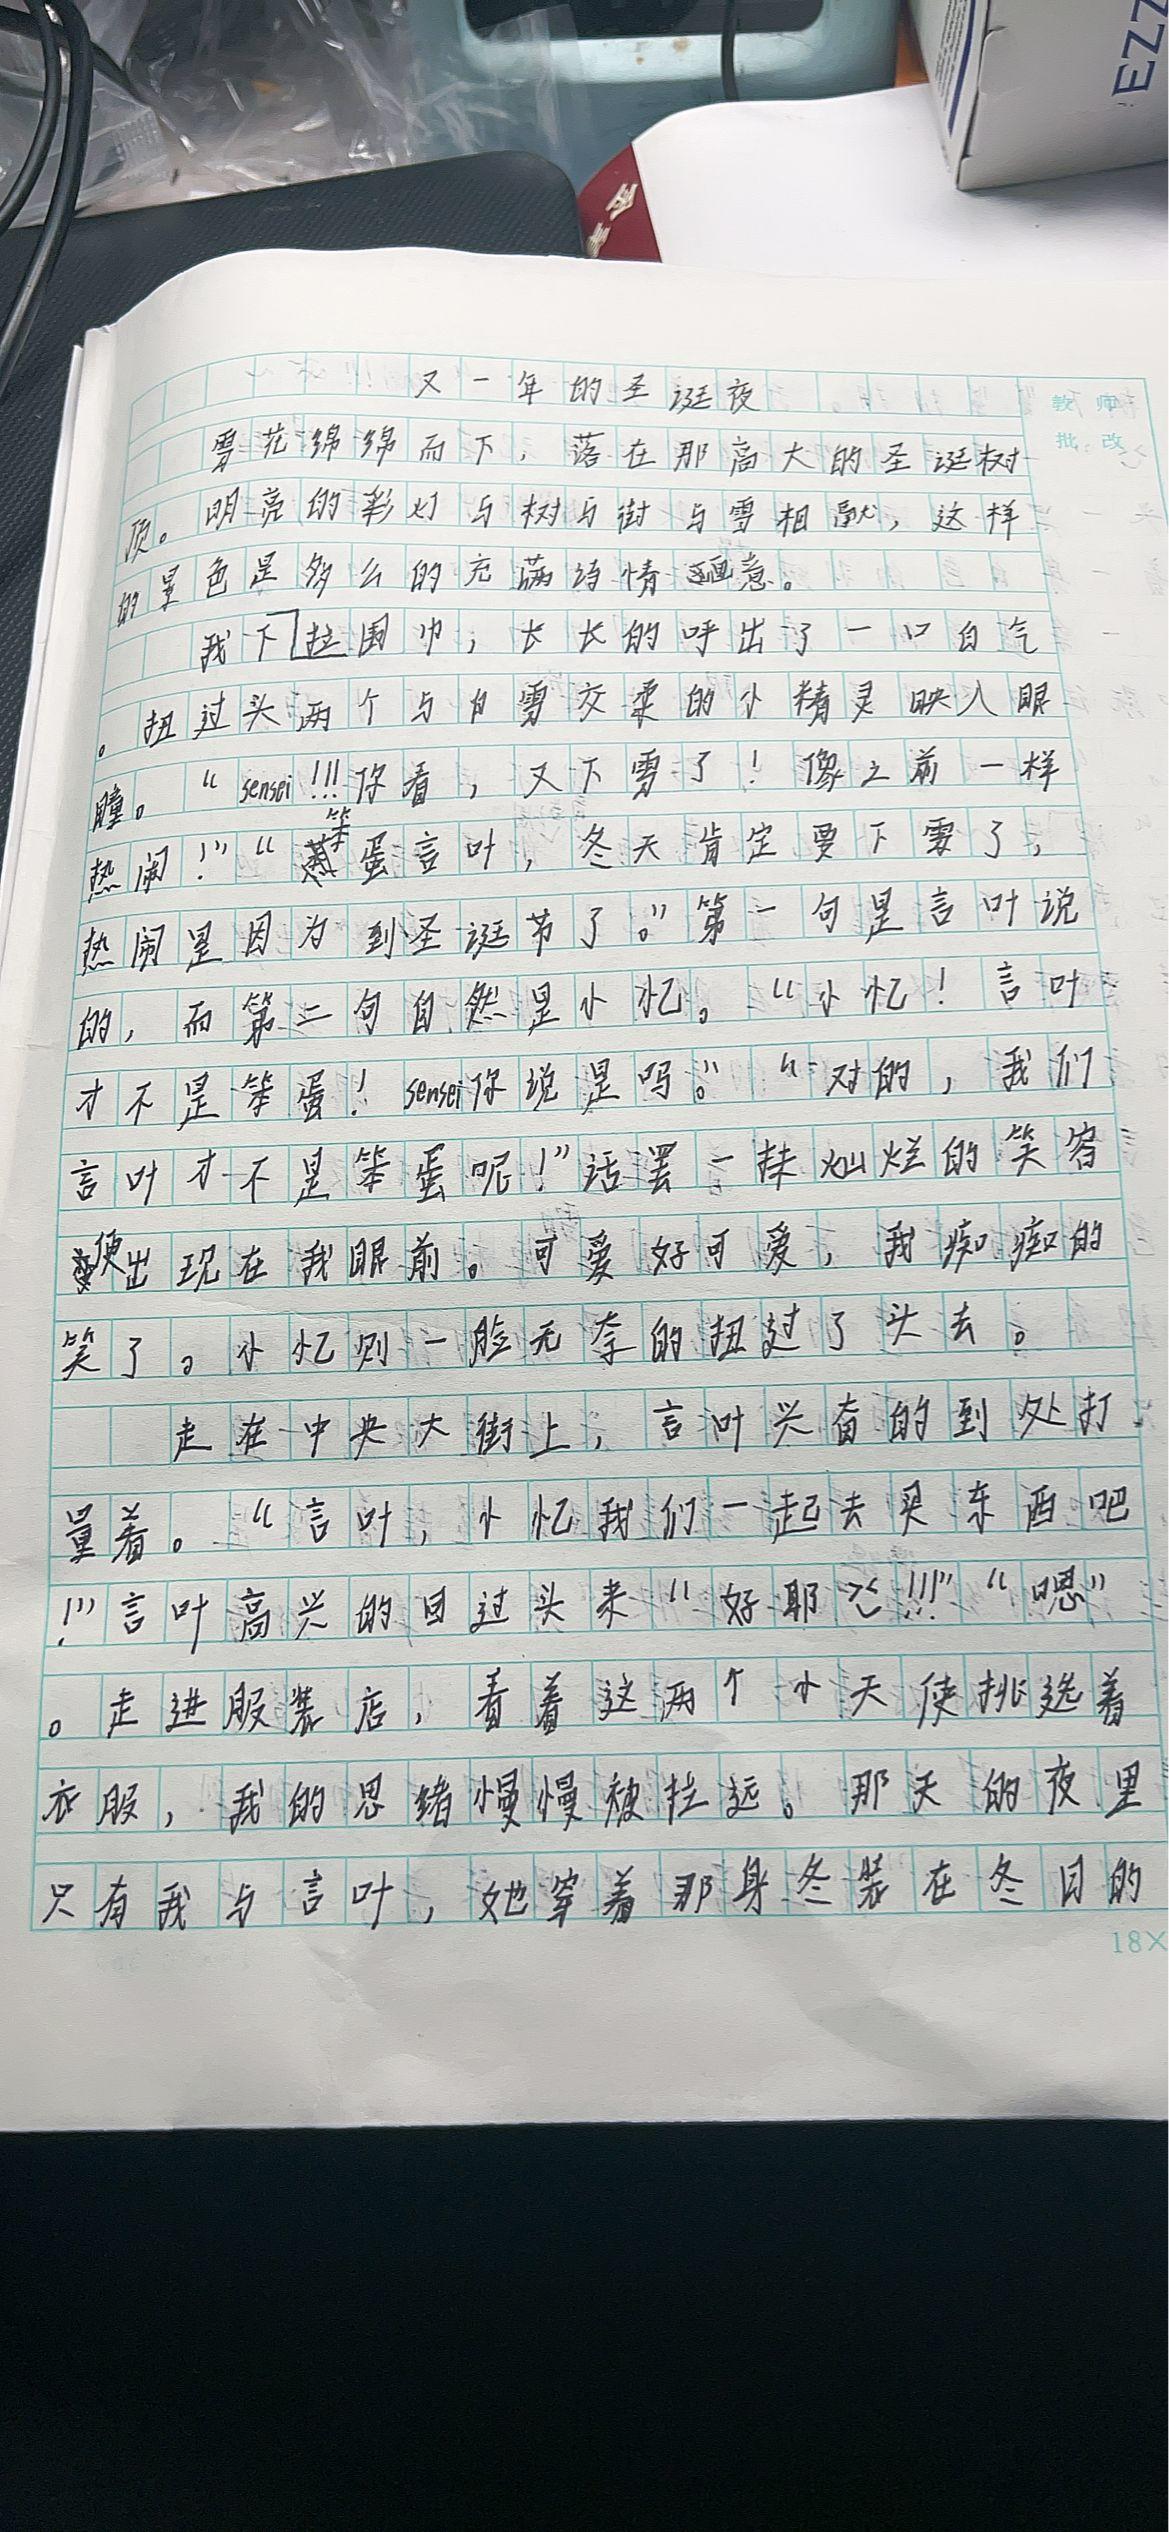 EZZ
教师
批改
又一年的圣诞夜
雪花绵绵而下,落在那高大的圣诞树
顶。明亮的彩灯与树与街与雪相,这样
的景色是多么的充满诗情画意。
我下拉围巾,长长的呼出了一口白气
。扭过头两个与白雪交柔的小精灵映入眼
瞳。“sensei!!!你看,又下雪了!像之前一样
热闹!”“笨蛋言叶,冬天肯定要下雪了,
热闹是因为到圣诞节了。”第一句是言叶说
的,而第二句自然是小忆。“小忆!言叶
才不是笨蛋!sensei你说是吗。”“对的,我们
言叶才不是笨蛋呢!”话罢一抹灿烂的笑容
便出现在我眼前。可爱好可爱,我痴痴的
笑了。小忆则一脸无奈的扭过了头去。
走在中央大街上,言叶兴奋的到处打
量着。“言叶,小忆我们一起去买东西吧
!”言叶高兴的回过头来“好耶!!!”“嗯”
。走进服装店,看着这两个小天使挑选着
衣服,我的思绪慢慢被拉远。那天的夜里
只有我与言叶,她穿着那身冬装在冬日的
18×